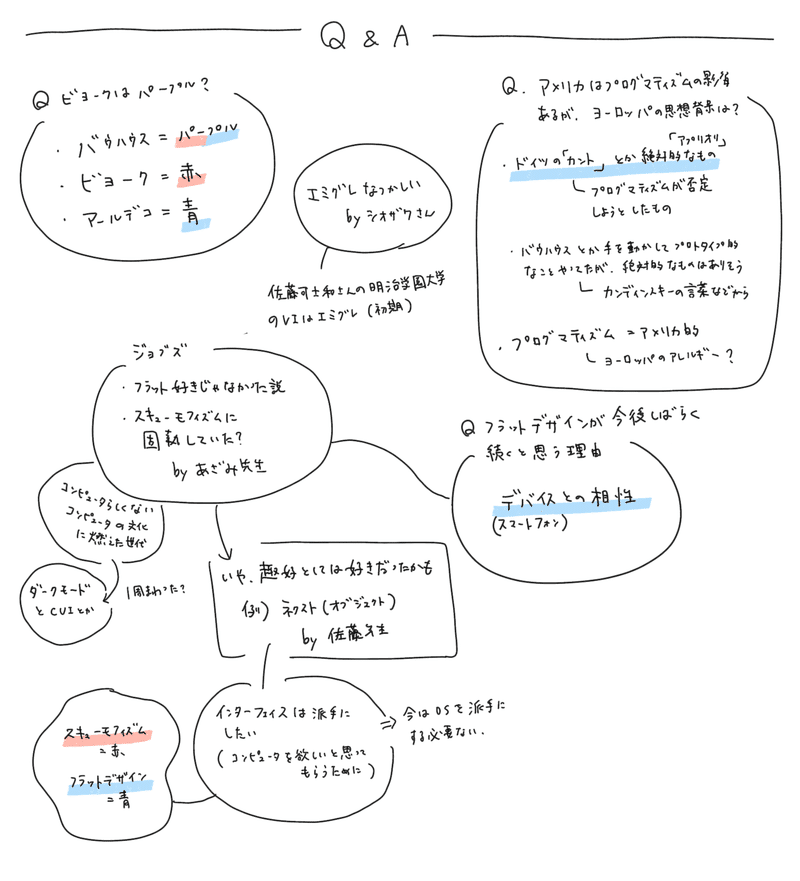 Q & A
Q ビヨークは パープル?
・ バウハウス = パープル
・ ビヨーク = 赤、
・ アールデコ = 青
エミグレ なつかしい
by シオザワさん
佐藤可士和さんの明治学園大学
のVIはエミグレ (初期)
Q. アメリカはプログマティズムの影響
あるが、ヨーロッパの思想背景は?
「アプリオリ」
・ドイツの「カント」とか絶対的なもの
プログマティズムが否定
しようとしたもの
・バウハウスとか手を動かしてプロトタイプ的
なことやってたが、絶対的なものはありそう
カンディンスキーの言葉などから
・プログマティズム = アメリカ的
ヨーロッパのアレルギー?
ジョブズ
・フラット好きじゃなかった説
・スキューモフィズムに
固執していた?
by あざみ先生
コンピュータらしくない
コンピュータの文化
に燃えた世代
ダークモード
と CUIとか
1周まわった?
Q フラットデザインが 今後しばらく
続くと思う理由
デバイスとの相性
(スマートフォン)
いや、趣好としては好きだったかも
例) ネクスト(オブジェクト)
by 佐藤先生
インターフェイスは派手に
したい
(コンピュータを欲しいと思って
もらうために)
⇒ 今はOSを派手に
する必要ない.
スキューモフィズム
= 赤、
フラットデザイン
= 青